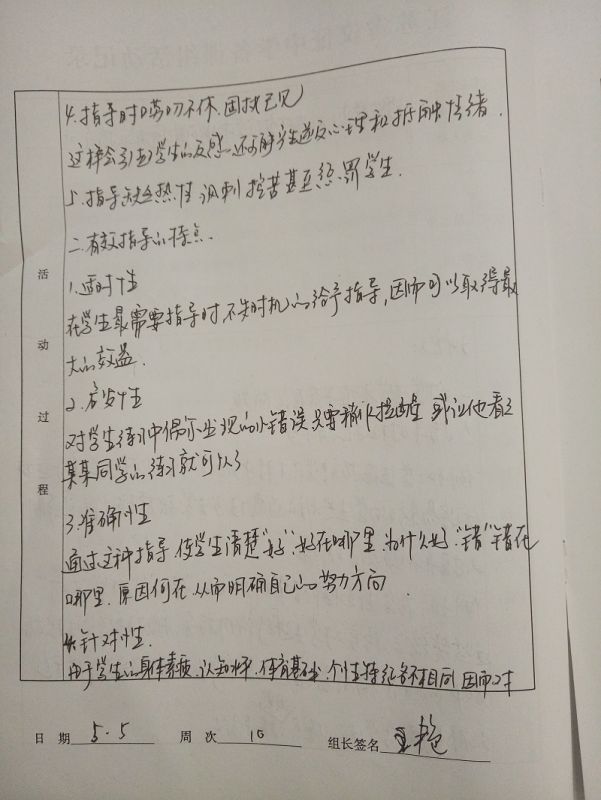 4.指导时唠叨不休.固执己见
这样会引起学生的反感,还可能产生逆反心理和抵触情绪.
5.指导缺乏热情 讽刺挖苦甚至惩罚学生.
二.有效指导的特点.
1.适时性
在学生最需要指导时,不失时机的给予指导,因而可以取得最
大的效益.
2.启发性
对学生练习中偶尔出现的小错误只要稍作提醒 或让他看看
某某同学的练习就可以了
3.准确性
通过这种指导 使学生清楚"好"好在哪里 为什么好."错"错在
哪里.原因何在 从而明确自己的努力方向.
4.针对性.
由于学生的身体素质.认知水平.体育基础.个性特征各不相同 因而对
活
动
过
程
日 期 5.5 周 次 10 组长签名 王艳